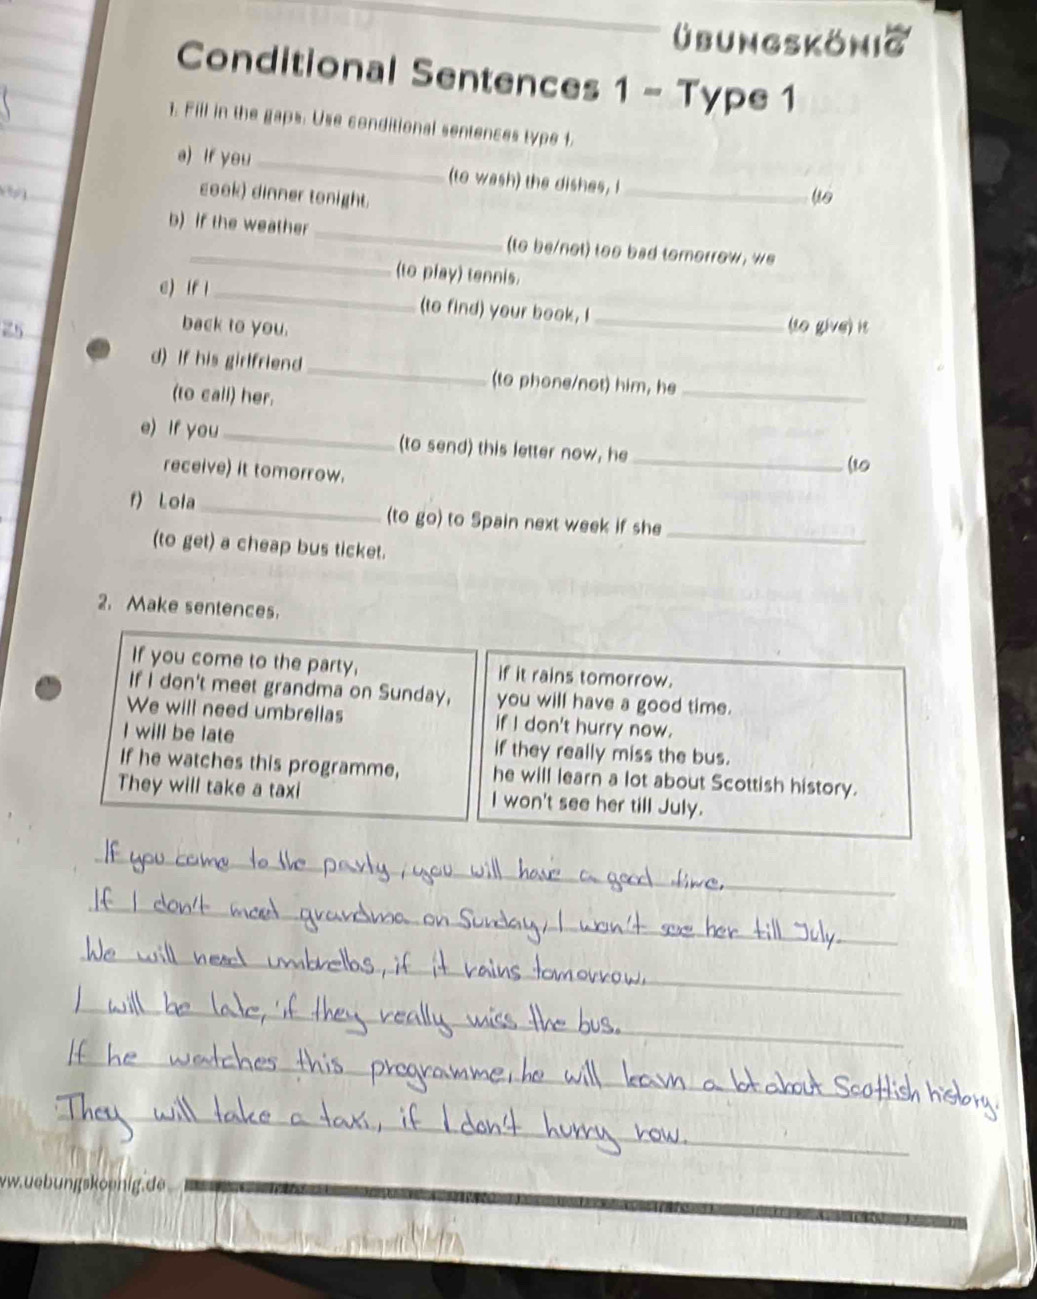 ÜBUNGSKÖNIG
Conditional Sentences 1 - Type 1
1. Fill in the gaps. Use conditional sentences type 1.
a) If you ____________ (to wash) the dishes, I ____________ (to
cook) dinner tonight.
b) If the weather ____________ (to be/not) too bad tomorrow, we
____________ (to play) tennis.
c) If I ____________ (to find) your book, I ____________ (to give) it
back to you.
d) If his girlfriend ____________ (to phone/not) him, he ____________
(to call) her.
e) If you ____________ (to send) this letter now, he ____________ (to
receive) it tomorrow.
f) Lola ____________ (to go) to Spain next week if she ____________
(to get) a cheap bus ticket.
2. Make sentences.
If you come to the party,
If I don't meet grandma on Sunday,
We will need umbrellas
I will be late
If he watches this programme,
They will take a taxi
if it rains tomorrow.
you will have a good time.
if I don't hurry now.
if they really miss the bus.
he will learn a lot about Scottish history.
I won't see her till July.
If you come to the party, you will have a good time.
If I don't meet grandma on Sunday, I won't see her till July.
We will need umbrellas, if it rains tomorrow.
I will be late, if they really miss the bus.
If he watches this programme, he will learn a lot about Scottish history.
They will take a taxi, if I don't hurry now.
ww.uebungskoenig.de